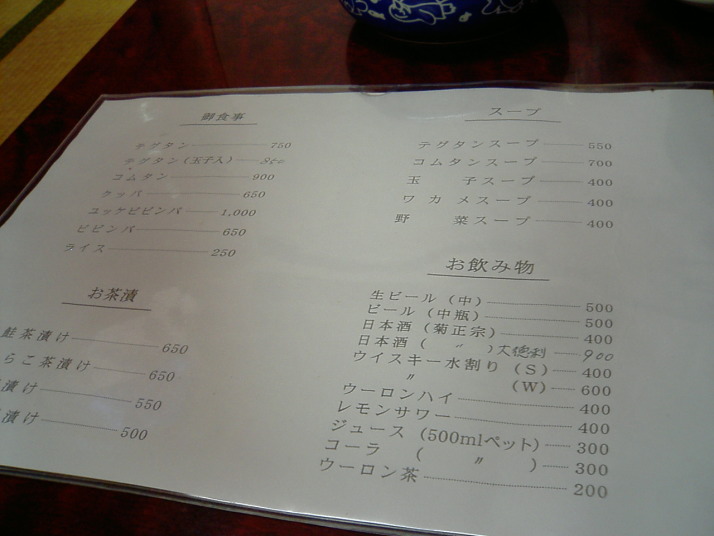 御食事
テグタン 750
テグタン（玉子入） 800
コムタン 900
クッパ 650
ユッケビビンバ 1,000
ビビンバ 650
ライス 250
お茶漬
鮭茶漬け 650
らこ茶漬け 650
漬け 550
漬け 500
スープ
テグタンスープ 550
コムタンスープ 700
玉　子スープ 400
ワカメスープ 400
野　菜スープ 400
お飲み物
生ビール（中） 500
ビール（中瓶） 500
日本酒（菊正宗） 400
日本酒（　〃　）大徳利 900
ウイスキー水割り（S） 400
〃　（W） 600
ウーロンハイ 400
レモンサワー 400
ジュース（500mlペット） 300
コーラ　（　〃　） 300
ウーロン茶 200